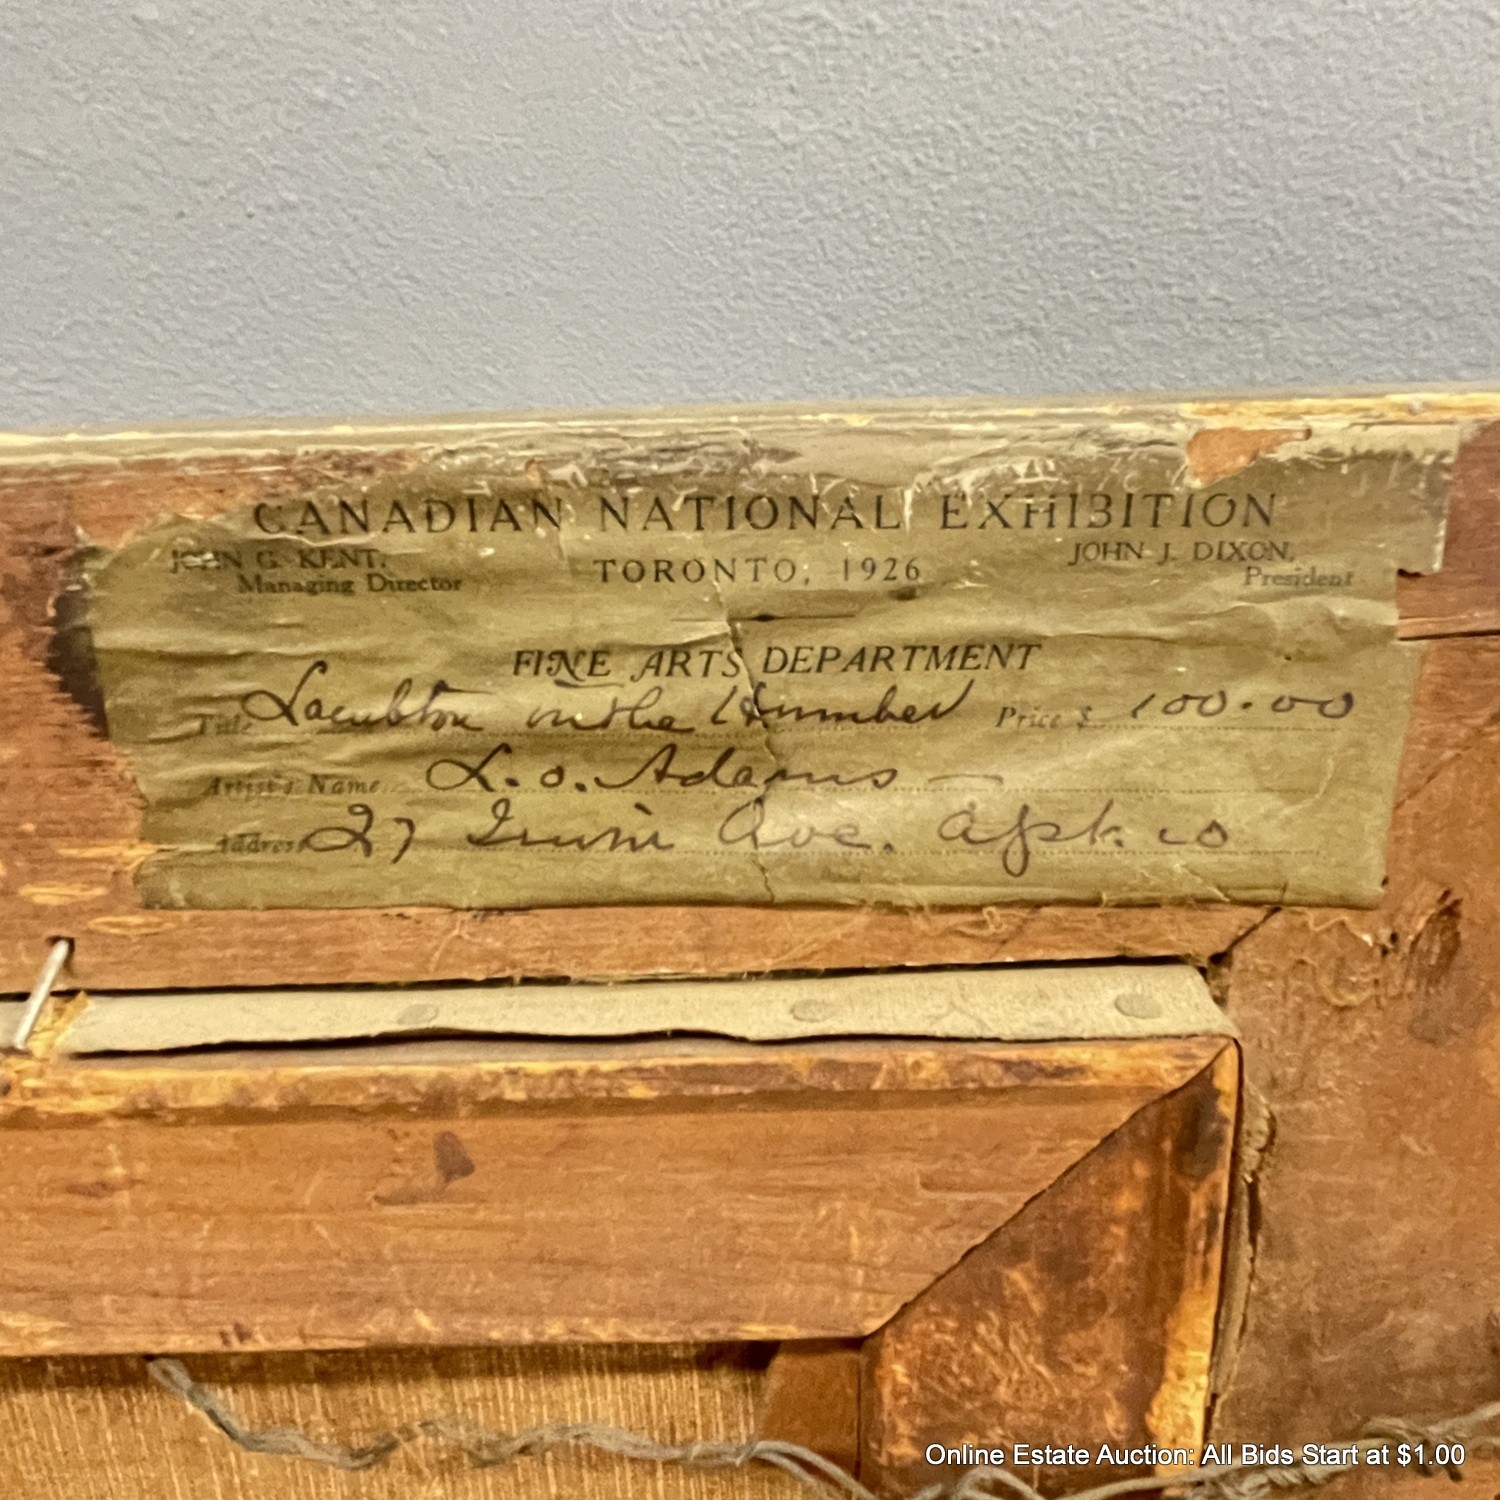 CANADIAN NATIONAL EXHIBITION
JOHN G. KENT, TORONTO, 1926 JOHN J. DIXON,
Managing Director President
FINE ARTS DEPARTMENT
Title Lambton on the Humber Price $ 100.00
Artist's Name L. O. Adams —
Address 27 Irwin Ave. Apt. 10
Online Estate Auction: All Bids Start at $1.00